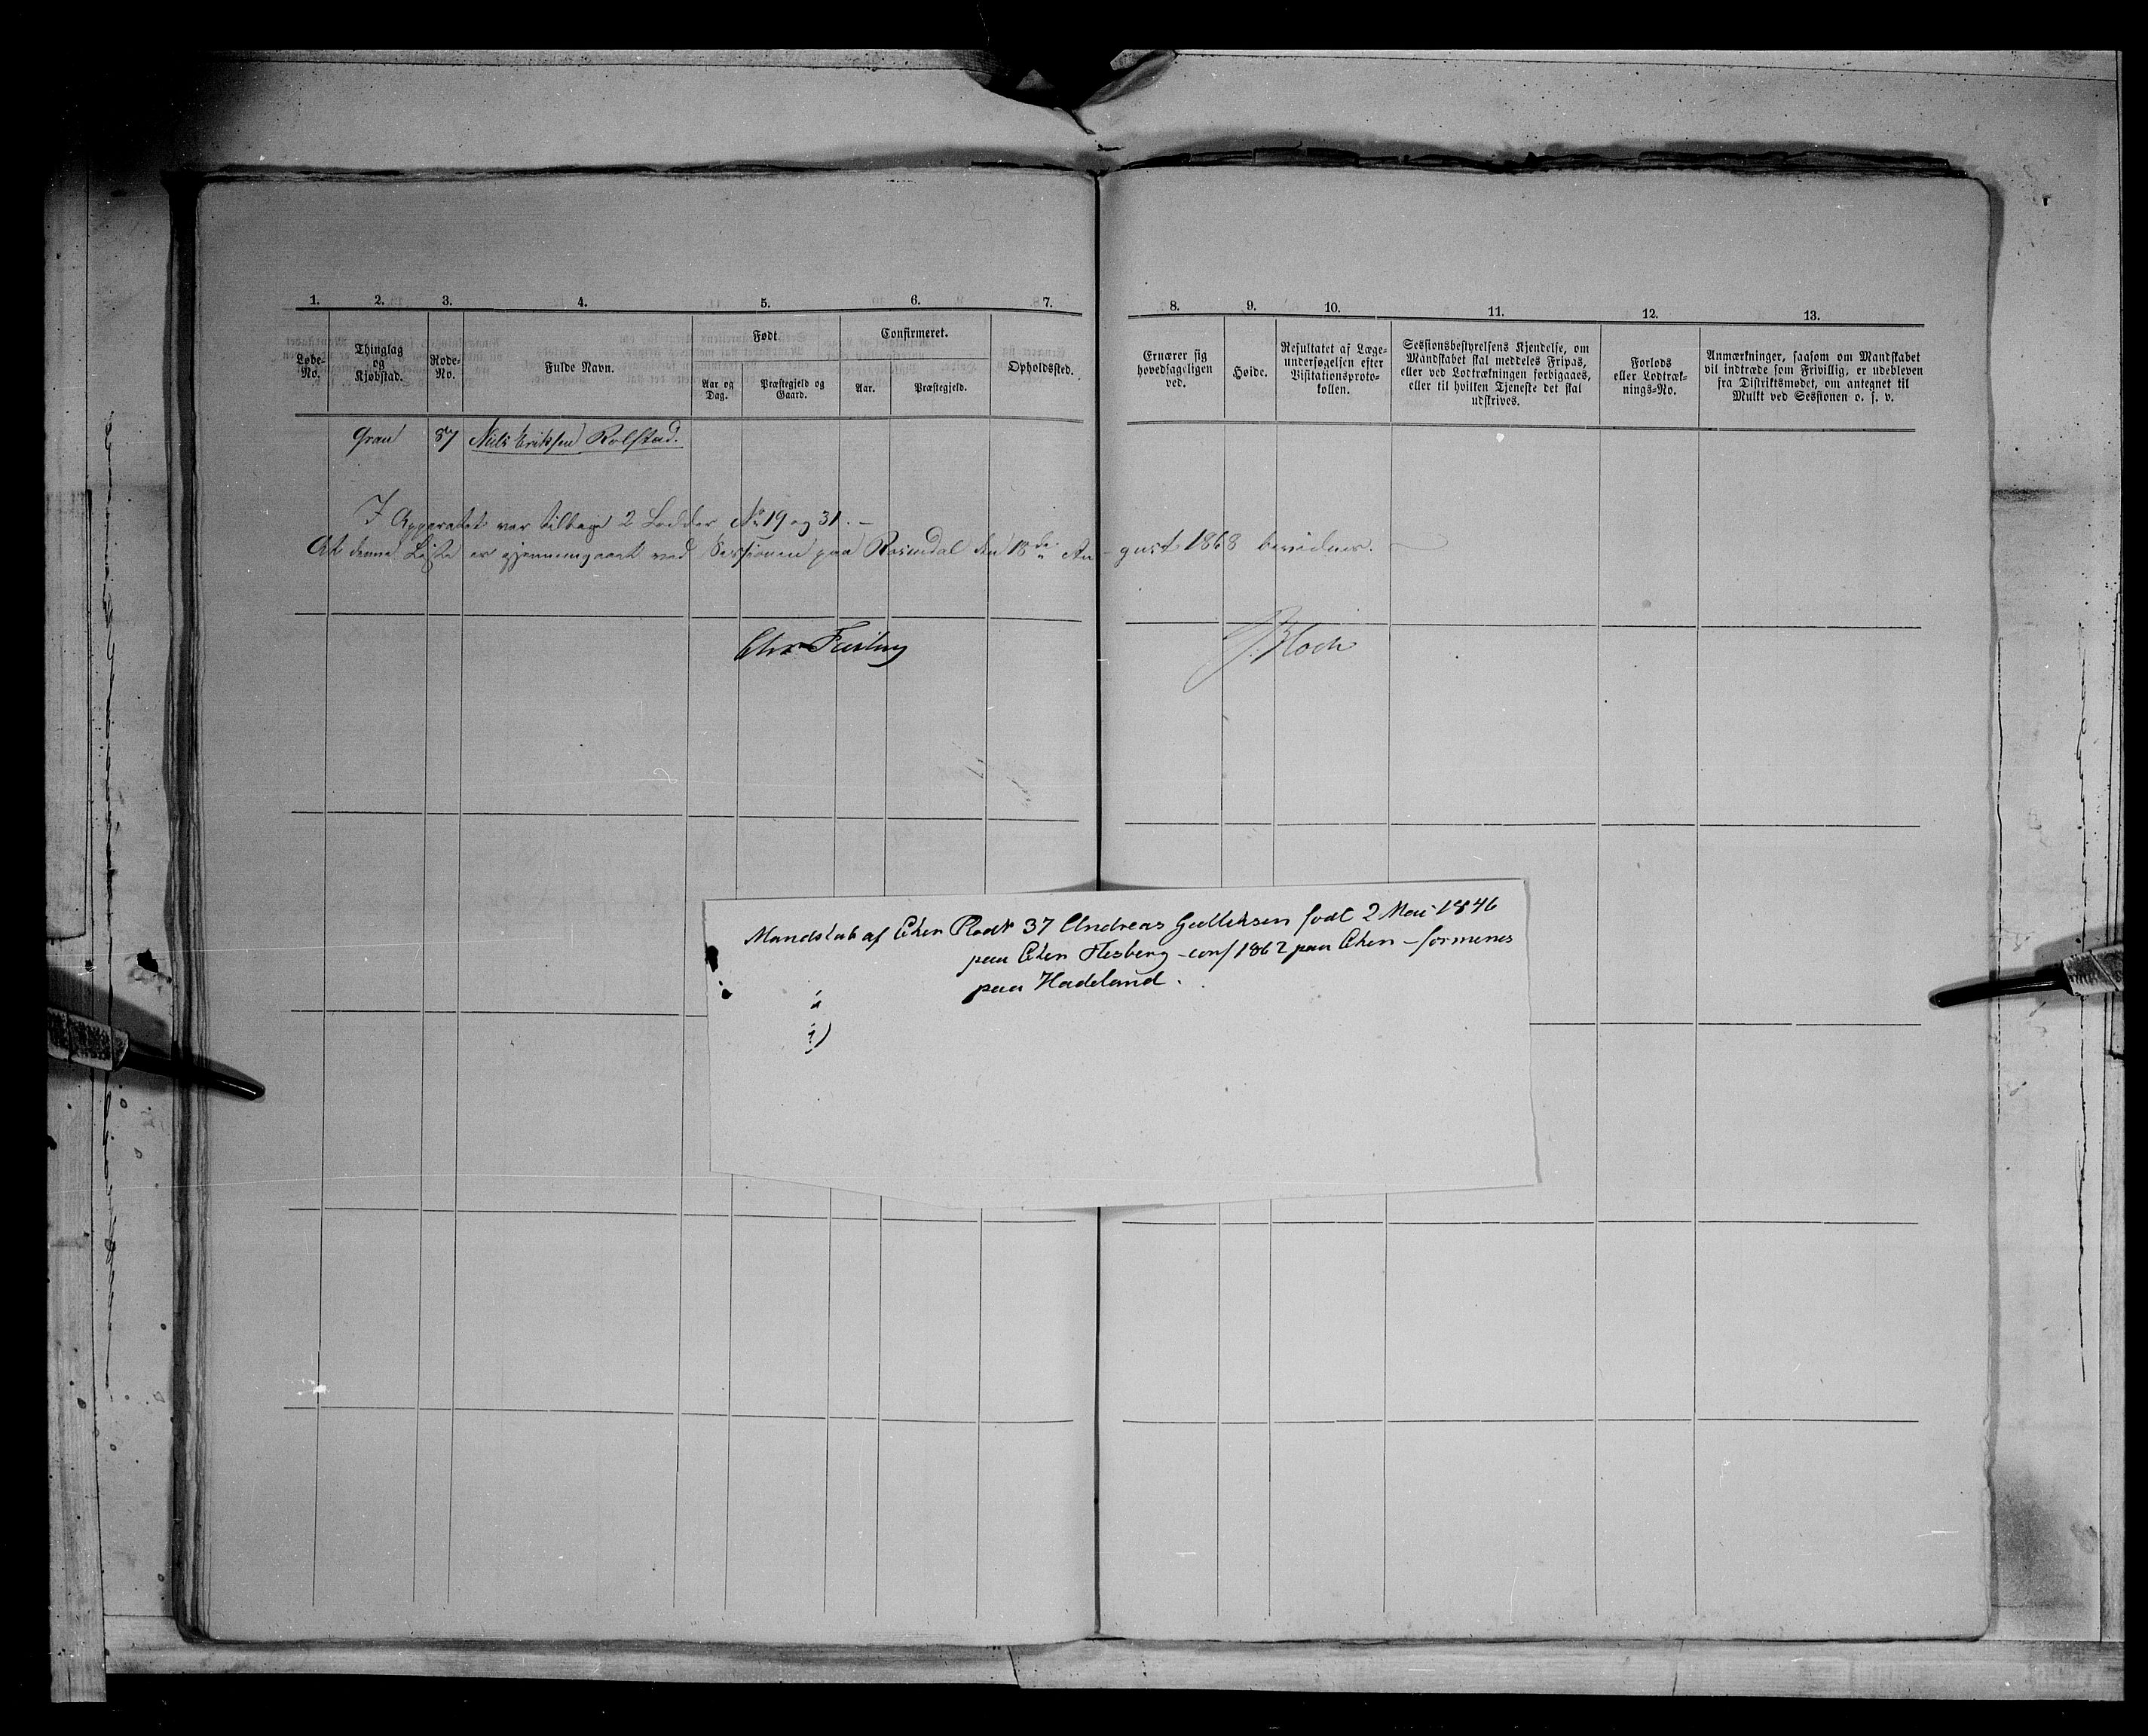 1. 2. 3. 4. 5. 6. 7.
Løbe-No. Thinglag og Kjøbstad. Rode-No. Fulde Navn. Født Aar og Dag. Præstegjeld og Gaard. Confirmeret. Aar. Præstegjeld. Opholdssted.
Gran 87 Niels Eriksen Rolstad.
I Apparatet var tilbage 2 Lodder No 19 og 31. –
At denne Liste er gjennemgaaet ved Sessionen paa Rosendal den 18de Au-
Chr
8. 9. 10. 11. 12. 13.
Ernærer sig hovedsageligen ved. Høide. Resultatet af Læge-undersøgelsen efter Visitationsproto-kollen. Sessionsbestyrelsens Kjendelse, om Mandskabet skal meddeles Fripas, eller ved Lodtrækningen forbigaaes, eller til hvilken Tjeneste det skal udskrives. Forlods eller Lodtræk-nings-No. Anmærkninger, saasom om Mandskabet vil indtræde som Frivillig, er udebleven fra Distriktsmødet, om antegnet til Mulkt ved Sessionen o. s. v.
gust 1868 bevidnes.
Bloch
Mandskab af Eker Rode 37 Andreas Gulliksen født 2 Mai 1846
paa Eker Flesberg – conf 1862 paa Eker – formenes
paa Hadeland.